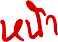 หน้า